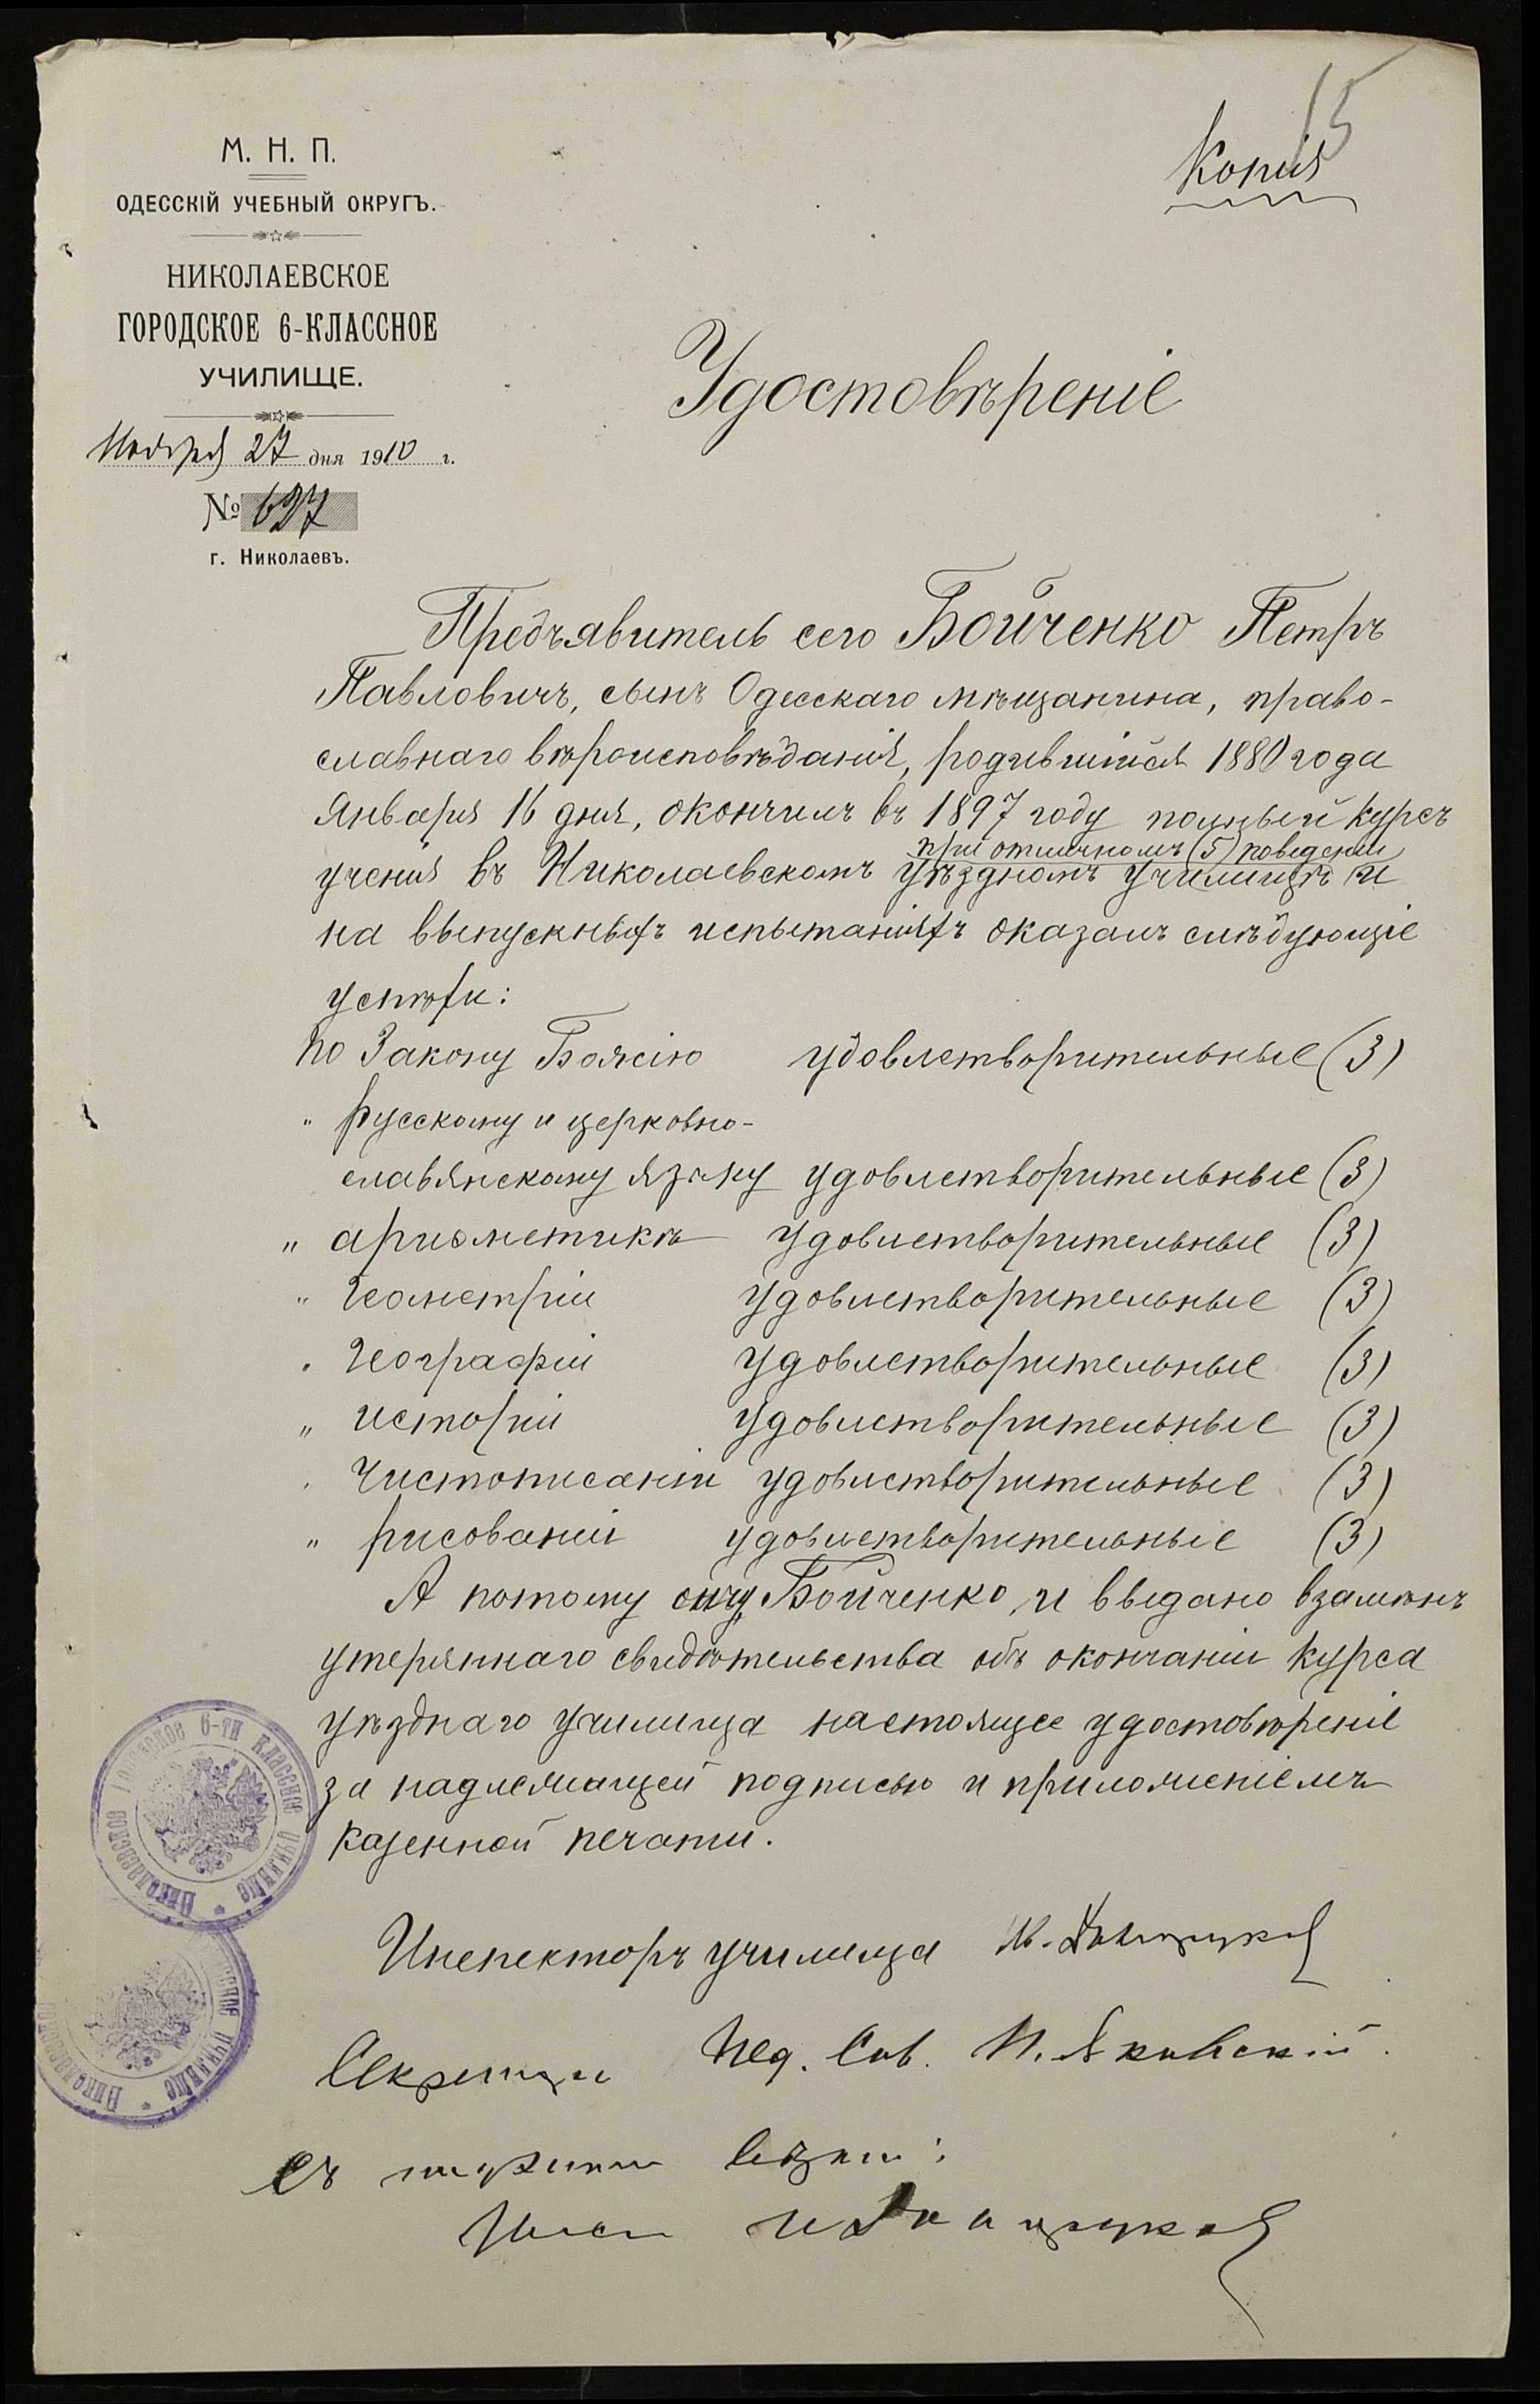 15
Копія
М. Н. П.
ОДЕССКІЙ УЧЕБНЫЙ ОКРУГЪ.
НИКОЛАЕВСКОЕ
ГОРОДСКОЕ 6-КЛАССНОЕ
УЧИЛИЩЕ.
Ноября 27 дня 1910 г.
№ 627
г. Николаевъ.
Удостовѣреніе
Предъявитель сего Бойченко Петръ
Павловичъ, сынъ Одесскаго мѣщанина, право-
славнаго вѣроисповѣданія, родившійся 1880 года
Января 16 дня, окончилъ въ 1897 году полный курсъ
при отличномъ (5) поведеніи
ученія въ Николаевскомъ уѣздномъ училищѣ и
на выпускныхъ испытаніяхъ оказалъ слѣдующіе
успѣхи:
по Закону Божію удовлетворительные (3)
" русскому и церковно-
славянскому языку удовлетворительные (3)
" ариѳметикѣ удовлетворительные (3)
" геометріи удовлетворительные (3)
" географіи удовлетворительные (3)
" исторіи удовлетворительные (3)
" чистописанію удовлетворительные (3)
" рисованію удовлетворительные (3)
А потому ему, Бойченко, и выдано взамѣнъ
утеряннаго свидѣтельства объ окончаніи курса
уѣзднаго училища настоящее удостовѣреніе
за надлежащей подписью и приложеніемъ
казенной печати.
Инспекторъ училища
Секретарь Пед. Сов. П. Яковскій
Съ вѣрно:
Николаевское Городское 6-ти классное училище